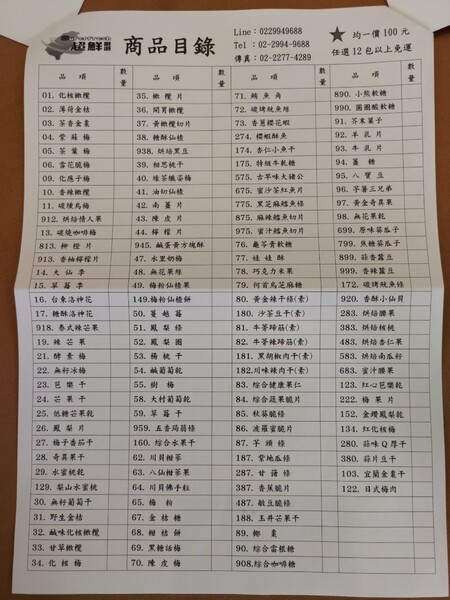 SuperFresh
超鮮
商品目錄
Line: 0229949688
Tel : 02-2994-9688
傳真: 02-2277-4289
★ 均一價 100 元
任選 12 包以上免運
品 項 數量 品 項 數量 品 項 數量 品 項 數量
01. 化核橄欖 35. 橄欖片 71. 鮪魚角 890. 小熊軟糖
02. 薄荷金桔 36. 開胃橄欖 72. 碳烤魷魚絲 990. 圈圈酸軟糖
03. 茶香金棗 37. 黃橄欖切片 73. 香蔥櫻花蝦 91. 芥末菓子
04. 紫蘇梅 38. 糖酥仙楂 274. 櫻蝦酥魚 92. 羊乳片
05. 茶葉梅 938. 烘焙黑豆 174. 杏仁小魚干 93. 牛乳片
06. 雪花脆梅 39. 相思桃干 175. 特級牛軋糖 94. 薑糖
09. 化應子梅 40. 維茶孅姿梅 275. 古早味大豬公 95. 八寶豆
10. 香辣橄欖 41. 油切仙楂 675. 蜜沙茶紅魚片 96. 芋薯三兄弟
11. 碳燻烏梅 42. 南薑片 775. 黑芝麻鱈魚條 97. 黃金奇異果
912. 烘焙情人果 43. 陳皮片 875. 麻辣鱈魚切片 98. 無花果乾
13. 碳燒咖啡梅 44. 檸檬片 975. 蜜汁鱈魚切片 699. 原味葵瓜子
813. 柳橙片 945. 鹹蛋黃方塊酥 76. 龜苓膏軟糖 799. 焦糖葵瓜子
913. 香柚檸檬片 47. 水里奶梅 77. 娃娃酥 899. 蒜香蠶豆
14. 大仙李 48. 無花果絲 78. 巧克力米果 999. 香辣蠶豆
15. 草莓李 49. 梅粉仙楂果 79. 何首烏芝麻糖 172. 碳烤魷魚條
16. 台東洛神花 149.梅粉仙楂餅 80. 黃金辣干條(素) 920. 香酥小仙貝
17. 糖酥洛神花 50. 蔓越莓 180. 沙茶豆干(素) 283. 烘焙腰果
918. 泰式辣芒果 51. 鳳梨條 81. 牛蒡蹄筋(素) 383. 烘焙核桃
19. 辣芒果 52. 鳳梨圈 82. 牛蒡辣蹄筋(素) 483. 烘焙杏仁果
21. 酵素梅 53. 楊桃干 181. 黑胡椒肉干(素) 583. 烘焙南瓜籽
22. 無籽冰梅 54. 鹹葡萄乾 182.川味辣肉干(素) 683. 蜜汁腰果
23. 芭樂干 55. 樹梅 83. 綜合健康果仁 123. 紅心芭樂乾
24. 芒果干 58. 大村葡萄乾 84. 綜合蔬果脆片 222. 梅果片
25. 低糖芒果乾 59. 草莓干 85. 秋葵脆條 152. 金鑽鳳梨乾
26. 鳳梨片 959. 五香蒟蒻條 86. 波蘿蜜脆片 134. 紅化核梅
27. 梅子番茄干 160. 綜合水果干 87. 芋頭條 280. 蒜味Q厚干
28. 奇異果干 62. 川貝柑莘 187. 紫地瓜條 380. 蒜片豆干
29. 水蜜桃乾 63. 八仙柑莘果 287. 甘藷條 103. 宜蘭金棗干
129. 梨山水蜜桃 64. 川貝佛手粒 387. 香蕉脆片 122. 日式梅肉
30. 無籽葡萄干 65. 梅粉 487. 敏豆脆條
31. 野生金桔 67. 金桔糖 188. 玉井芒果干
32. 鹹味化核橄欖 68. 柑桔餅 89. 椰棗
33. 甘草橄欖 69. 黑糖話梅 90. 綜合雷根糖
34. 化核梅 70. 陳皮梅 908.綜合咖啡糖